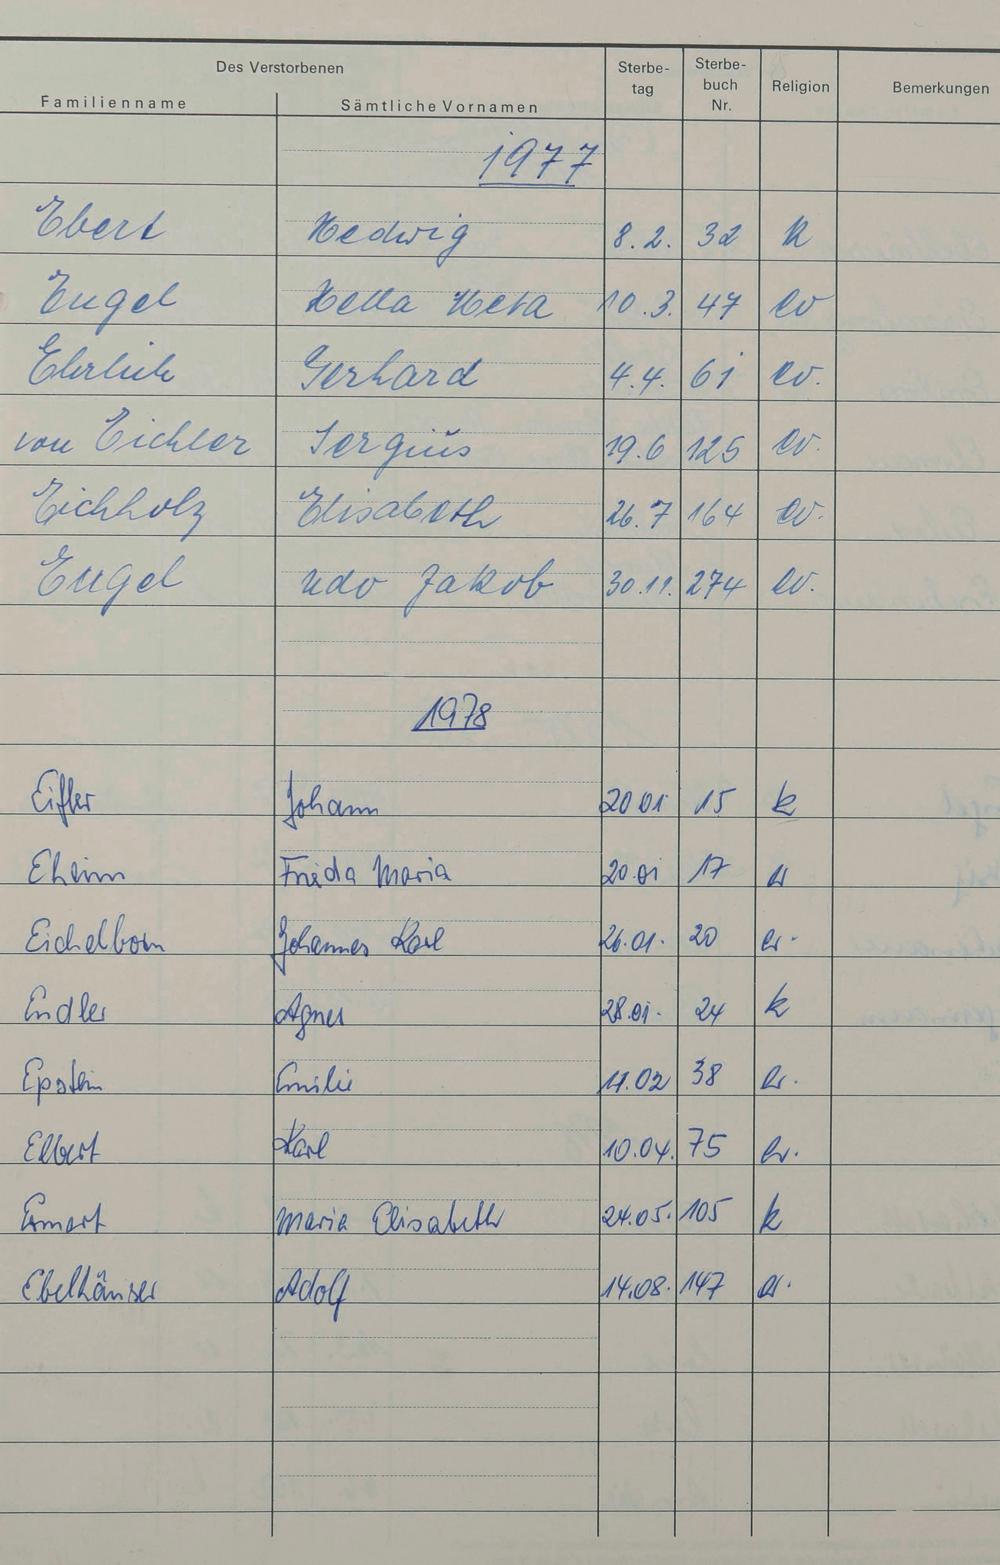 Des Verstorbenen
Familienname Sämtliche Vornamen Sterbe-tag Sterbe-buch Nr. Religion Bemerkungen
1977
Ebert Hedwig 8.2. 32 k
Engel Hella Meta 10.3. 47 ev
Ehrlich Gerhard 4.4. 61 ev.
von Eichler Sergius 19.6 125 ev.
Eichholz Elisabeth 26.7 164 ev.
Engel Udo Jakob 30.11. 274 ev.
1978
Eifler Johann 20 01 15 k
Eheim Frieda Maria 20.01 17 ev
Eichelborn Johannes Karl 26.01. 20 ev.
Endler Agnes 28.01. 24 k
Epstein Emilie 11.02 38 ev.
Elbert Karl 10.04. 75 ev.
Emart Maria Elisabeth 24.05. 105 k
Ebelhäuser Adolf 14.08. 147 ev.